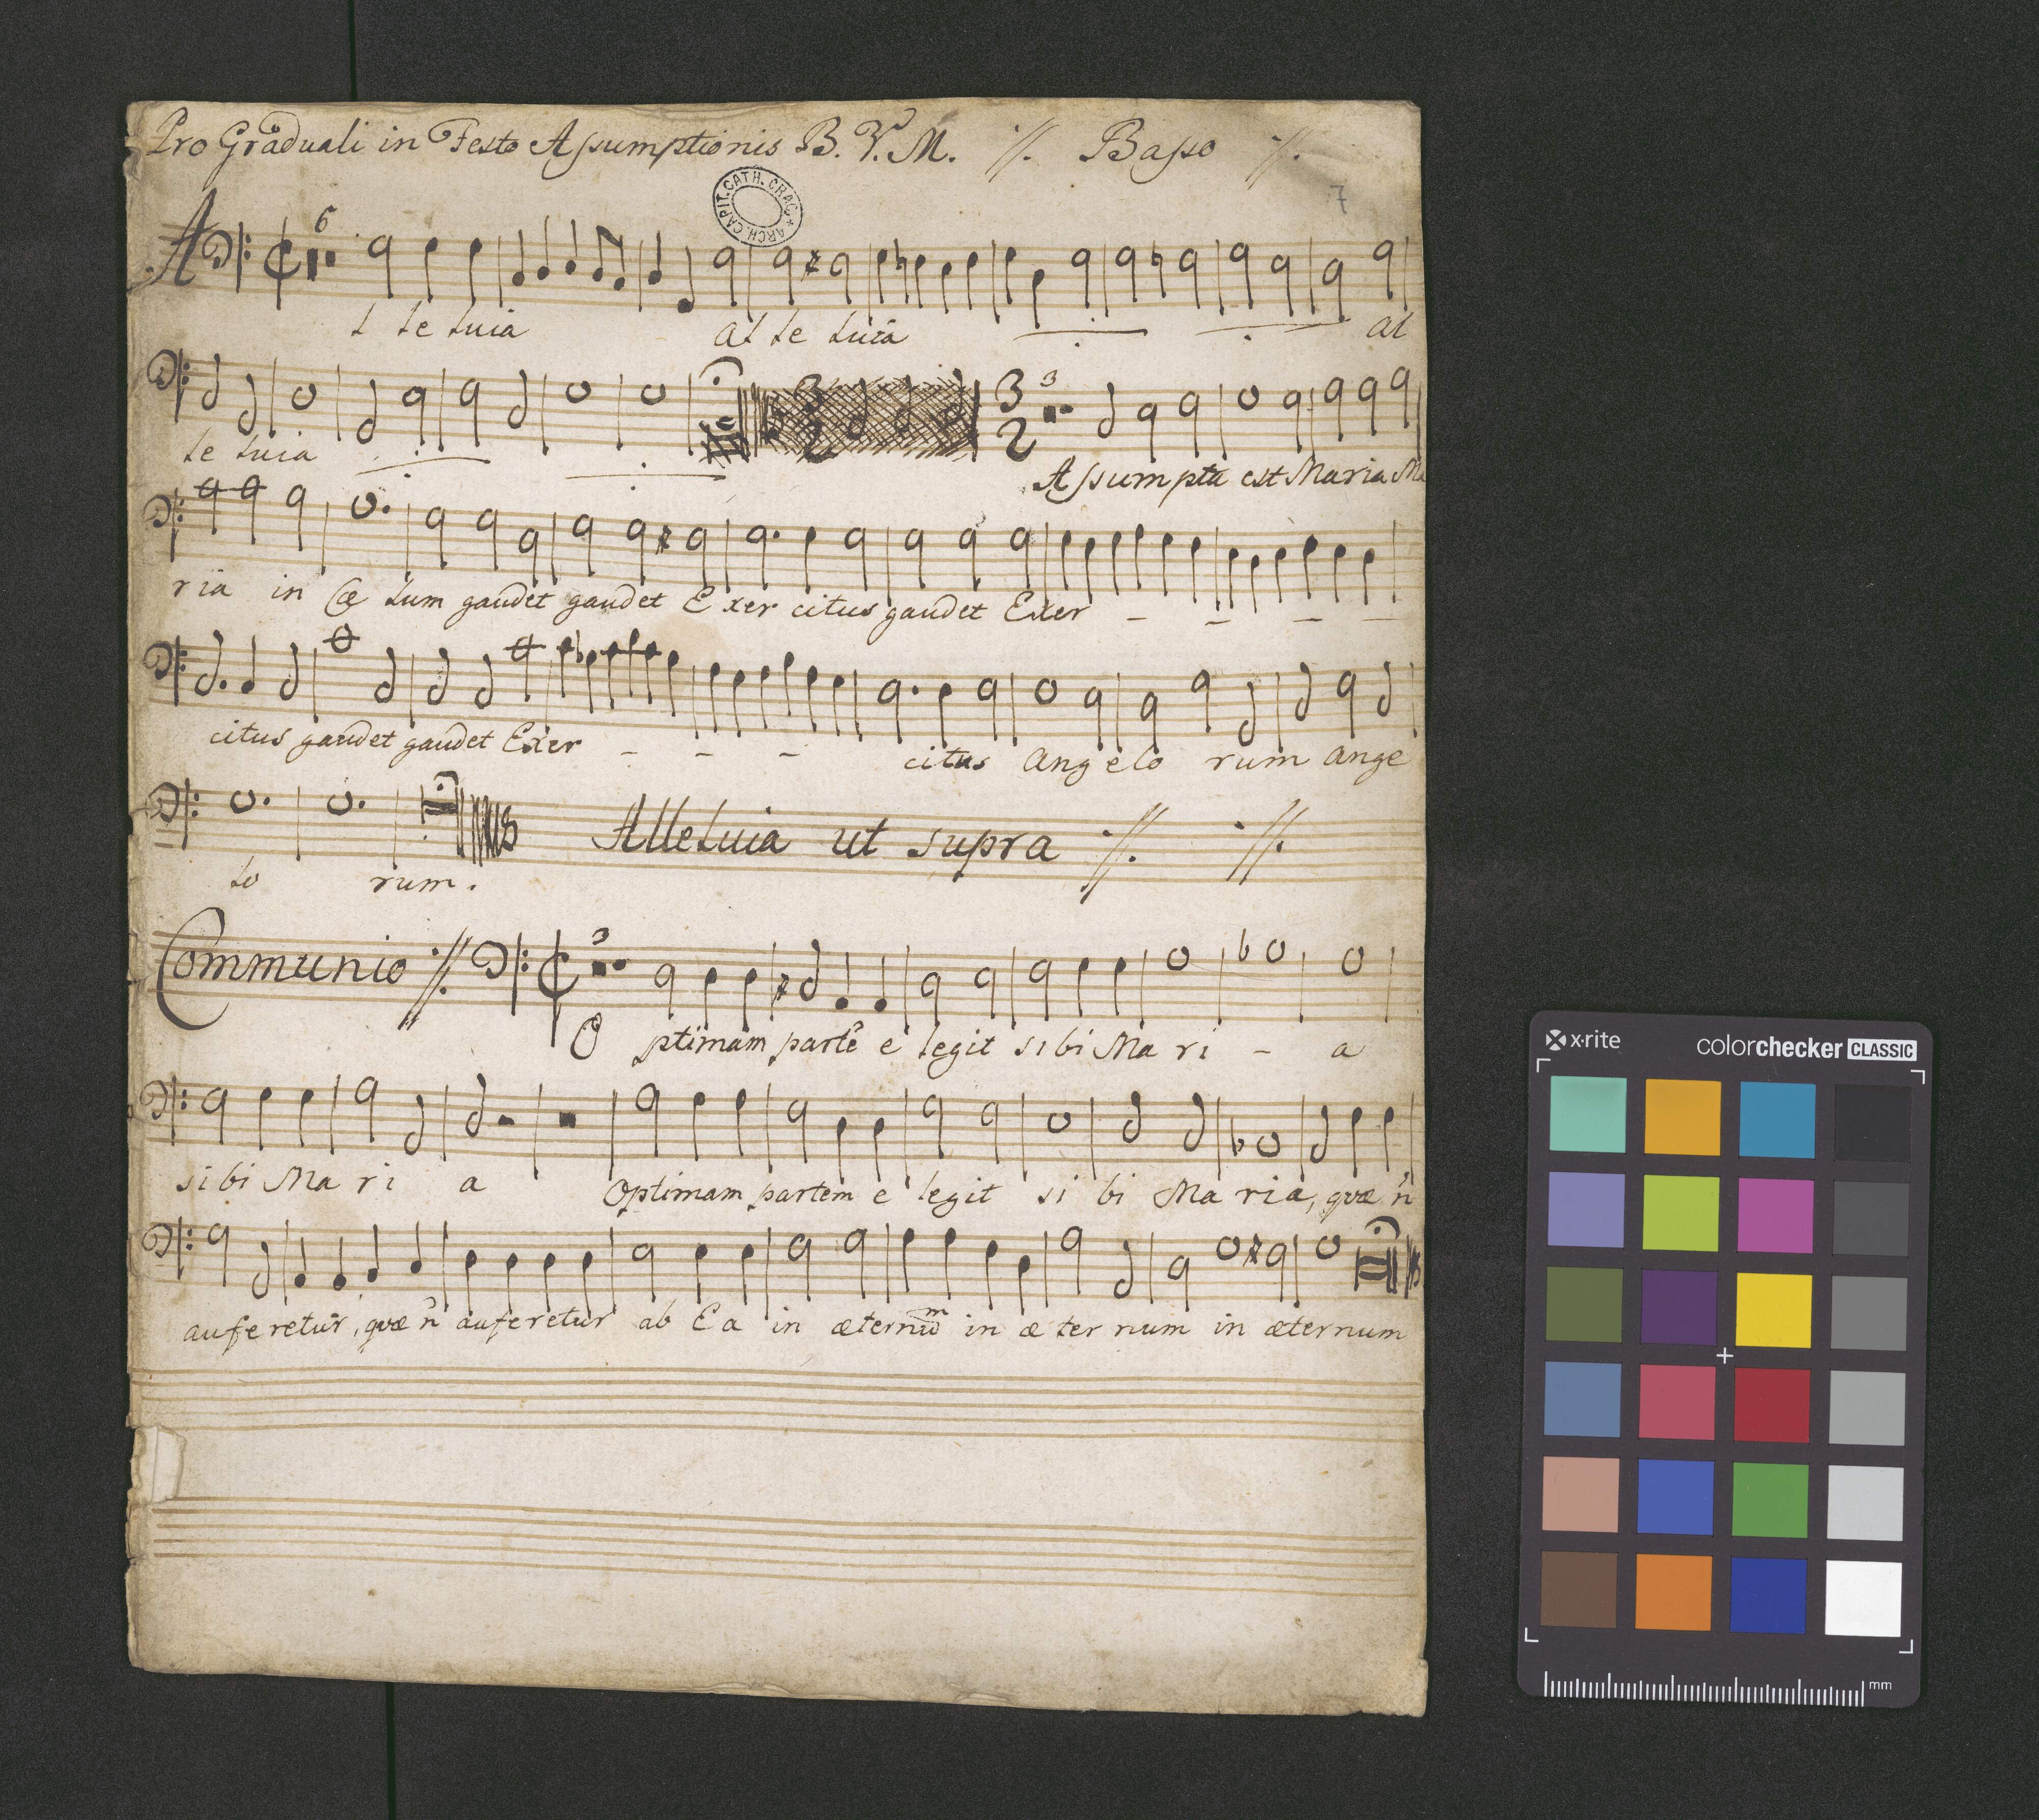 Pro Graduali in Festo Assumptionis B. V. M. Basso
ARCH. CAPIT. CATH. CRAC.
7
6
Al le luia al le luia al
le luia
3
2
3
Assumpta est Maria Ma
ria in Cæ lum gaudet gaudet Exer citus gaudet Exer - - - -
citus gaudet gaudet Exer - - - citus Angelo rum Ange
lo rum.
Alleluia ut supra
Communio
3
Optimam partē e legit sibi Ma ri - a
sibi Ma ri a Optimam partem e legit si bi Ma ria, quæ n̄
auferetur, quæ n̄ auferetur ab Ea in æternūm in æ ter num in æternum
x·rite
colorchecker CLASSIC
mm